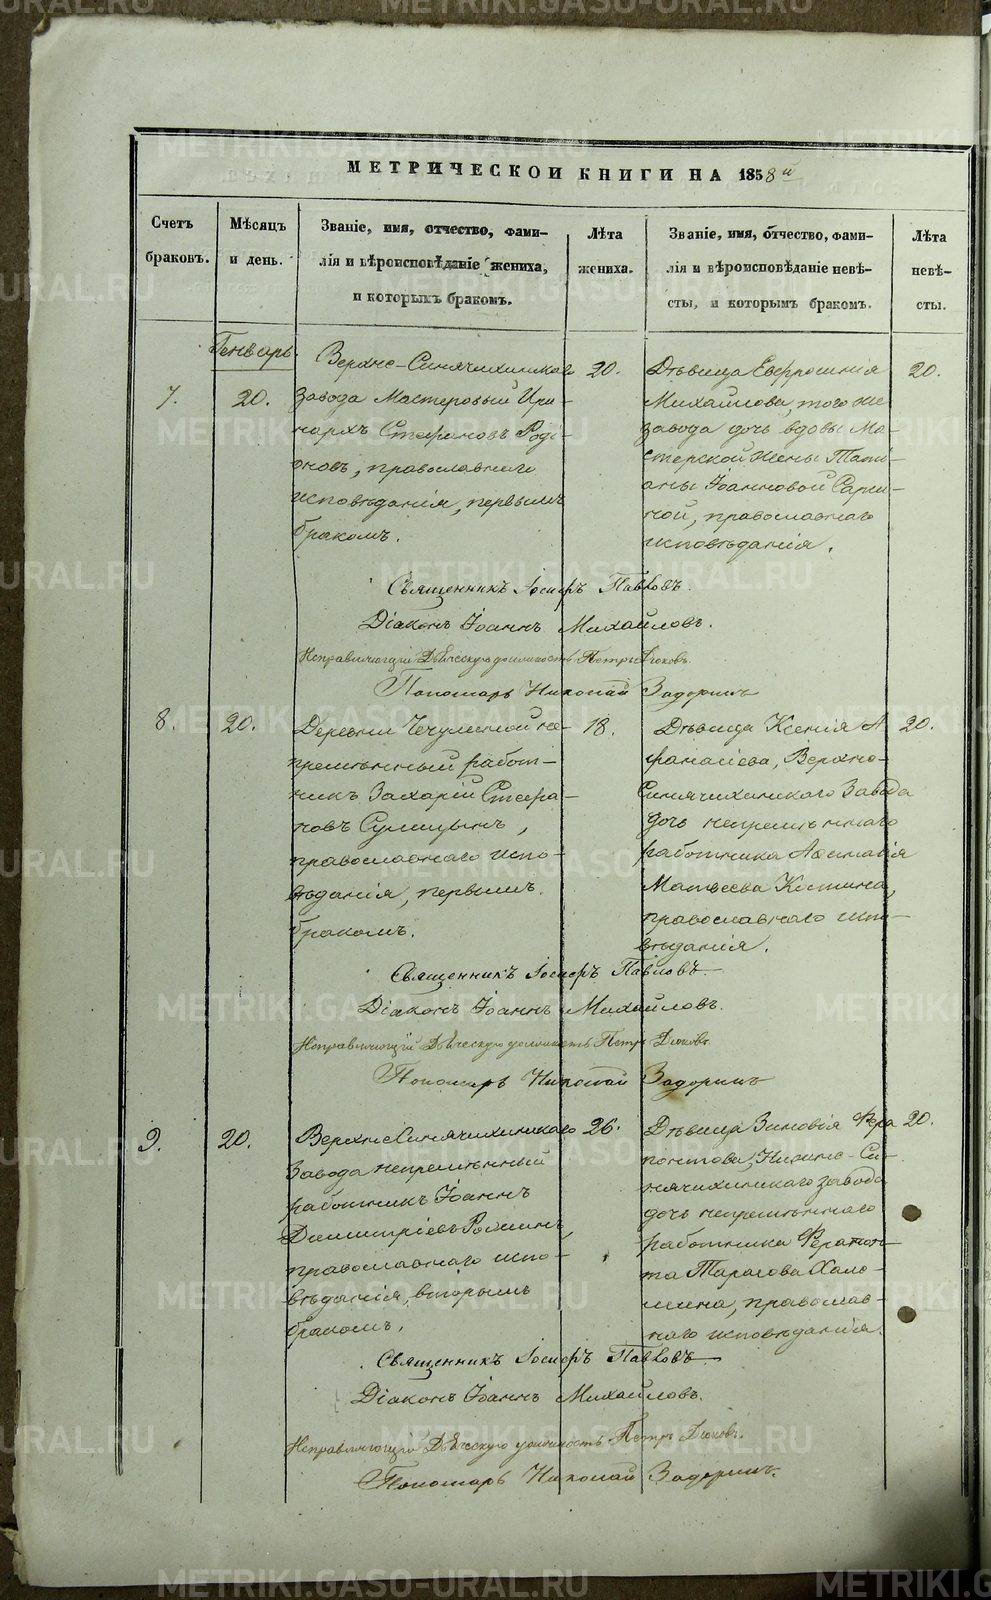 МЕТРИЧЕСКОЙ КНИГИ НА 1858й
Счетъ браковъ.
Мѣсяцъ и день.
Званіе, имя, отчество, фами-
лія и вѣроисповѣданіе жениха,
и которыхъ бракомъ.
Лѣта жениха.
Званіе, имя, отчество, фами-
лія и вѣроисповѣданіе невѣ-
сты, и которымъ бракомъ.
Лѣта невѣ-
сты.
Генварь.
7.
20.
Верхне-Синячихинскаго
завода Мастеровый Ири-
нархъ Стефановъ Роді-
оновъ, православнаго
исповѣданія, первымъ
бракомъ.
20.
Дѣвица Евфросинія
Михайлова, того же
завода дочь вдовы Ма-
стерской жены Таті-
аны Іоанновой
православнаго
исповѣданія.
20.
Священникъ Іосифъ Павловъ.
Діаконъ Іоаннъ Михайловъ.
Исправляющій Дьяческую должность Петръ Дюковъ.
Пономарь Николай Задоринъ
8.
20.
Деревни Чечулиной не-
премѣнный работ-
никъ Захарій Стефа-
новъ
православнаго испо-
вѣданія, первымъ
бракомъ.
18.
Дѣвица Ксенія А
фанасіева, Верхно-
Синячихинскаго Завода
дочь непремѣннаго
работника Афанасія
Матвеева Костина,
православнаго испо-
вѣданія.
20.
Священникъ Іосифъ Павловъ.
Діаконъ Іоаннъ Михайловъ.
Исправляющій Дьяческую должность Петръ Дюковъ.
Пономарь Николай Задоринъ
9.
20.
Верхне Синячихинскаго
Завода непремѣнный
работникъ Іоаннъ
Димитріевъ
православнаго испо-
вѣданія, вторымъ
бракомъ.
26.
Дѣвица Зиновія Фера
понтова, Нижне-Си-
нячихинскаго завода
дочь непремѣннаго
работника Ферапон-
та Тарасова Хале-
мина, православ-
наго исповѣданія.
20.
Священникъ Іосифъ Павловъ
Діаконъ Іоаннъ Михайловъ.
Исправляющій Дьяческую должность Петръ Дюковъ.
Пономарь Николай Задоринъ.
METRIKI.GASO-URAL.RU